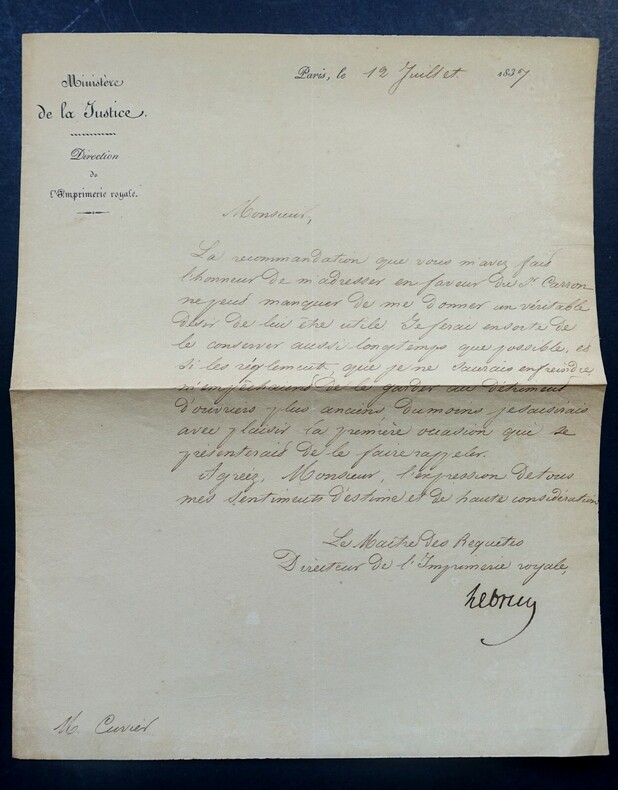 Ministère
de la Justice.
Direction
de
l'Imprimerie royale.
Paris, le 12 Juillet. 1837
Monsieur,
La recommandation que vous m'avez fait
l'honneur de m'adresser en faveur du Sr. Carron
ne peut manquer de me donner un véritable
désir de lui être utile. Je ferai ensorte de
le conserver aussi longtemps que possible, et
si les réglements, que je ne saurais enfreindre
m'empêchaient de le garder au détriment
d'ouvriers plus anciens, dumoins je saisirais
avec plaisir la première occasion qui se
présenterait de le faire rappeler.
Agréez, Monsieur, l'expression de tous
mes sentiments d'estime et de haute considération
Le Maître des Requêtes
Directeur de l'Imprimerie royale,
Lebrun
M. Cuvier